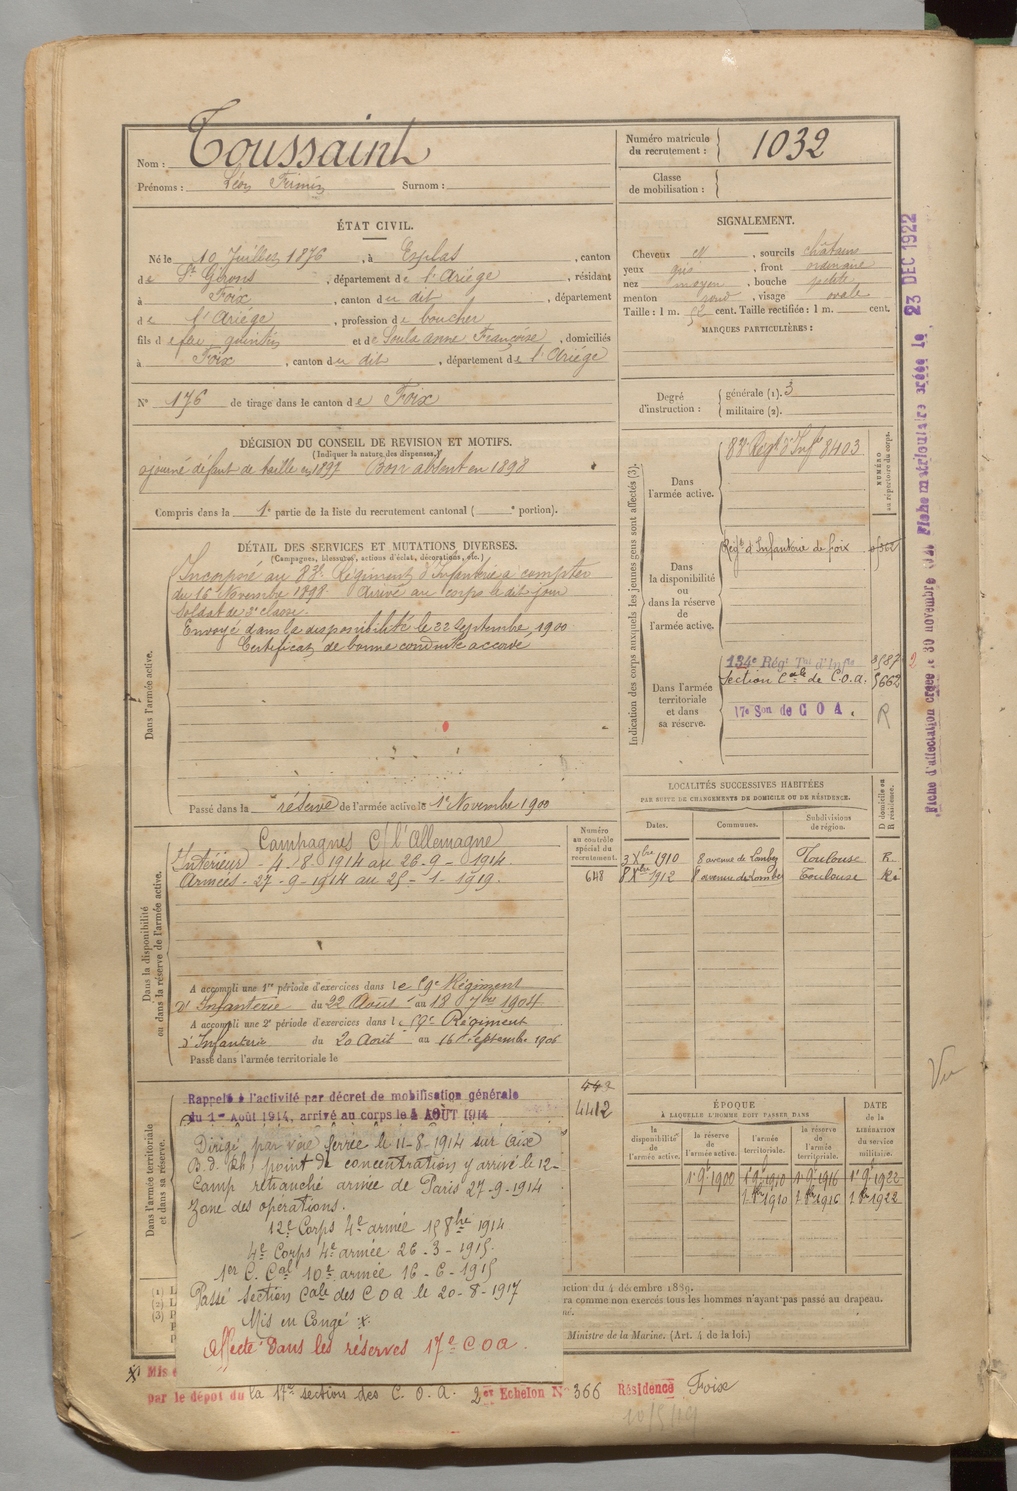 Nom : Toussaint
Prénoms : Léon Firmin Surnom :
Numéro matricule du recrutement : 1032
Classe de mobilisation :
ÉTAT CIVIL.
Né le 10 Juillet 1876, à Esplas, canton
de St Girons, département de l'Ariège, résidant
à Foix, canton du dit, département
de l'Ariège, profession de boucher
fils de feu quintin et de Soula anne Françoise, domiciliés
à Foix, canton du dit, département de l'Ariège
N° 176 de tirage dans le canton de Foix
SIGNALEMENT.
Cheveux et, sourcils châtains
yeux gris, front ordinaire
nez moyen, bouche petite
menton rond, visage ovale
Taille : 1 m. 52 cent. Taille rectifiée : 1 m. cent.
MARQUES PARTICULIÈRES :
Degré d'instruction : générale (1). 3
militaire (2).
DÉCISION DU CONSEIL DE REVISION ET MOTIFS.
(Indiquer la nature des dispenses.)
ajourné défaut de taille en 1897 Bon absent en 1898
Compris dans la 1e partie de la liste du recrutement cantonal ( e portion).
DÉTAIL DES SERVICES ET MUTATIONS DIVERSES.
(Campagnes, blessures, actions d'éclat, décorations, etc.)
Dans l'armée active.
Incorporé au 83e Régiment d'Infanterie a compter
du 16 Novembre 1898. Arrivé au corps le dit jour
Soldat de 2e classe.
Envoyé dans la disponibilité le 22 Septembre 1900
Certificat de bonne conduite accordé
Passé dans la réserve de l'armée active le 1er Novembre 1900
Indication des corps auxquels les jeunes gens sont affectés (3).
NUMÉRO au répertoire du corps.
Dans l'armée active.
83e Régt d'Infie 8403
Dans la disponibilité ou dans la réserve de l'armée active.
Régt d'Infanterie de foix
Dans l'armée territoriale et dans sa réserve.
134e Régt Tal d'Infie 3587
Section Cale de C.O.a. 5662
17e Son de C O A. R
LOCALITÉS SUCCESSIVES HABITÉES
PAR SUITE DE CHANGEMENTS DE DOMICILE OU DE RÉSIDENCE.
Dates. Communes. Subdivisions de région. D domicile ou R résidence.
3 Xbre 1910 8 avenue de Lombez Toulouse R.
8 Xbre 1912 8 avenue de Lombez Toulouse R.
Dans la disponibilité ou dans la réserve de l'armée active.
Numéro au contrôle spécial du recrutement.
648
Campagnes C/ l'Allemagne
Intérieur - 4-8-1914 au 26-9-1914.
Armées - 27-9-1914 au 25-1-1919.
A accompli une 1re période d'exercices dans le 59e Régiment
d'Infanterie du 22 Août au 18 7bre 1904
A accompli une 2e période d'exercices dans le 59e Régiment
d'Infanterie du 20 Août au 16 Septembre 1906
Passé dans l'armée territoriale le
Dans l'armée territoriale et dans sa réserve.
442
4412
Rappelé à l'activité par décret de mobilisation générale
du 1er Août 1914, arrivé au corps le 4 AOÛT 1914
Dirigé par voie ferrée le 11-8-1914 sur Aix
B.d. Rh) point de concentration y arrivé le 12-
Camp retranché armée de Paris 27-9-1914
Zone des opérations.
12e Corps 4e armée 15 8bre 1914
4e Corps 4e armée 26-3-1915.
1er C. Cal 10e armée 16-6-1915
Passé Section Cale des C O a le 20-8-1917
Mis en Congé :x.
Affecté dans les réserves 17e C O a.
ÉPOQUE
À LAQUELLE L'HOMME DOIT PASSER DANS
DATE de la LIBÉRATION du service militaire.
la disponibilité de l'armée active.
la réserve de l'armée active.
l'armée territoriale.
la réserve de l'armée territoriale.
1er 9bre 1900 1er 9bre 1910 1er 9bre 1916 1er 9bre 1922
1 8bre 1910 1 8bre 1916 1 8bre 1922
(1)
(2)
(3)
ction du 4 décembre 1889.
ra comme non exercés tous les hommes n'ayant pas passé au drapeau.
Ministre de la Marine. (Art. 4 de la loi.)
x Mis e
par le dépot du la 17e section des C. O. A. 2e Echelon N° 366 Résidence Foix
10/5/19
Vu
Fiche d'affectation créée le 30 novembre Fiche matriculaire créée le 23 DEC 1922